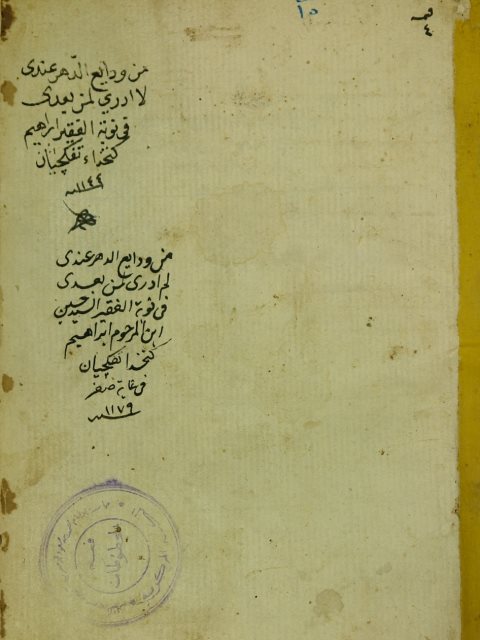 ١٥
٤
من ودايع الدهر عندى
لا ادري لمن بعدى
فى نوبة الفقير ابراهيم
كتخداء تفكچيان
١١٤٤ سنه
من ودايع الدهر عندى
لم ادرى لمن بعدى
فى نوبة الفقير السيد حسين
ابن المرحوم ابراهيم
كتخدا تفكچيان
فى غاية صفر
سنه ١١٧٩
قسم
المخطوطات